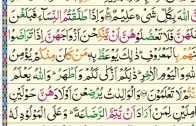 اللّٰهَ بِكُلِّ شَيْءٍ عَلِيمٌ وَإِذَا طَلَّقْتُمُ النِّسَاءَ فَبَلَغْنَ
أَجَلَهُنَّ فَلَا تَعْضُلُوهُنَّ أَنْ يَنْكِحْنَ أَزْوَاجَهُنَّ إِذَا تَرَاضَوْا
بَيْنَهُمْ بِالْمَعْرُوفِ ذٰلِكَ يُوعَظُ بِهِ مَنْ كَانَ مِنْكُمْ يُؤْمِنُ
بِاللّٰهِ وَالْيَوْمِ الْآخِرِ ذٰلِكُمْ أَزْكَىٰ لَكُمْ وَأَطْهَرُ وَاللّٰهُ يَعْلَمُ
وَأَنْتُمْ لَا تَعْلَمُونَ وَالْوَالِدَاتُ يُرْضِعْنَ أَوْلَادَهُنَّ حَوْلَيْنِ
كَامِلَيْنِ لِمَنْ أَرَادَ أَنْ يُتِمَّ الرَّضَاعَةَ وَعَلَى الْمَوْلُودِ لَهُ